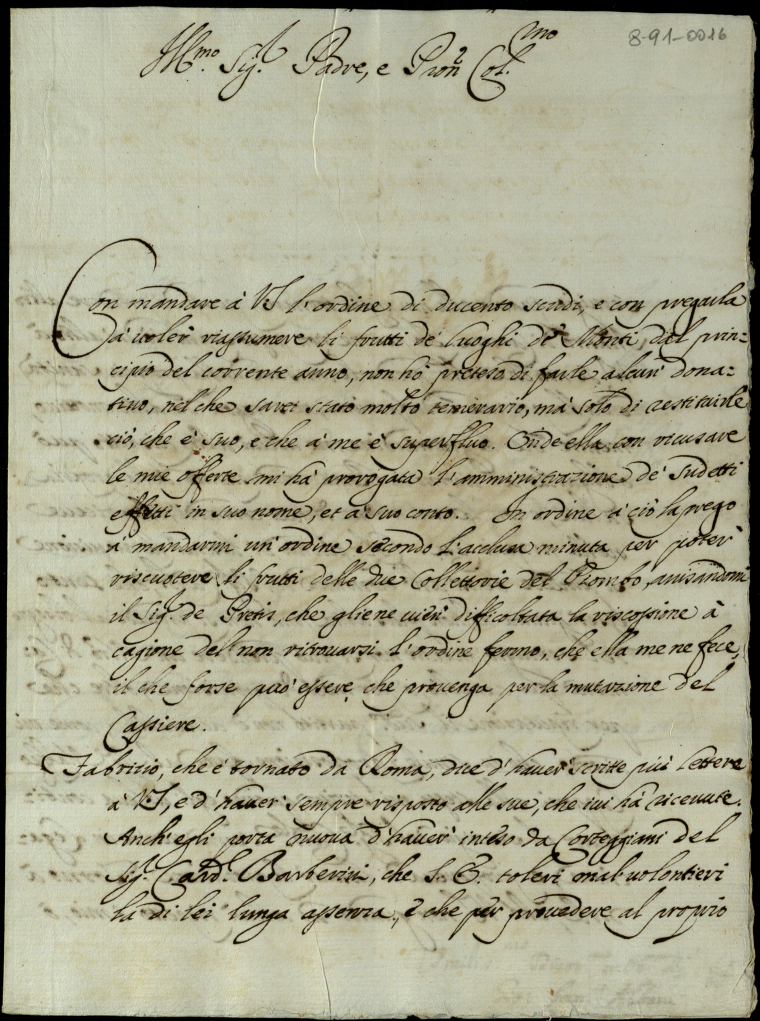 8-91-0016
Ill.mo Sig.r Padre, e Pron.e Col.mo
Con mandare à VS l'ordine di ducento scudi, e con pregarla
à voler riassumere li frutti de luoghi de Monti, dal prin-
cipio del corrente anno, non hò preteso di farle alcun dona-
tivo, nel che sarei stato molto temerario, mà solo di restituirle
ciò, che è suo, e che à me è superfluo. Onde ella con ricusare
le mie offerte mi hà prorogata l'amministrazione de sudetti
effetti in suo nome, et à suo conto. In ordine à ciò la prego
à mandarmi un' ordine secondo l'acclusa minuta per poter
riscuotere li frutti delle due Collettorie del Piombo, avisandomi
il Sig.r de Gretis, che gliene vien difficoltata la riscossione à
cagione del non ritrovarsi l'ordine fermo, che ella me ne fece,
il che forse può essere che provenga per la mutazione del
Cassiere.
Fabrizio, che è tornato da Roma, dice d'haver scritte più lettere
à VS, e d'haver sempre risposto alle sue, che ivi hà ricevute.
Anch'egli porta nuova d'haver inteso da Corteggiani del
Sig.r Card.l Barberini, che S. E. toleri mal volontieri
la di lei lunga assenza, e che per provedere al proprio